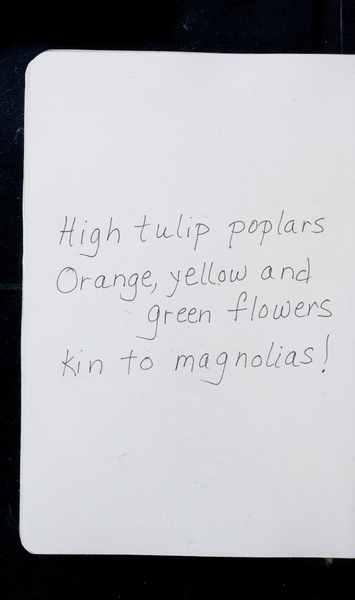 High tulip poplars
Orange, yellow and
green flowers
kin to magnolias!